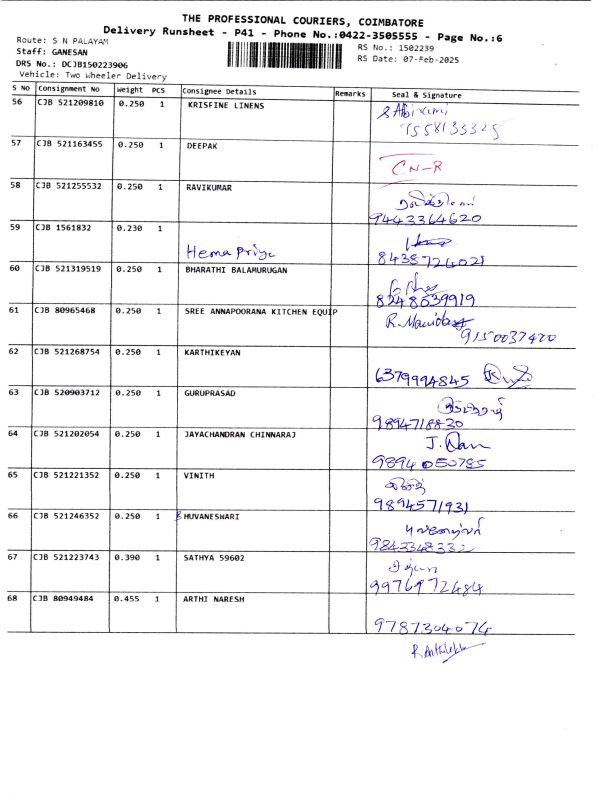 THE PROFESSIONAL COURIERS, COIMBATORE
Delivery Runsheet - P41 - Phone No.:0422-3505555 - Page No.:6
Route: S N PALAYAM
RS No.: 1502239
Staff: GANESAN
RS Date: 07-Feb-2025
DRS No.: DCJB150223906
Vehicle: Two Wheeler Delivery
S No Consignment No Weight PCS Consignee Details Remarks Seal & Signature
56 CJB 521209810 0.250 1 KRISFINE LINENS
57 CJB 521163455 0.250 1 DEEPAK
CN-R
58 CJB 521255532 0.250 1 RAVIKUMAR
9443364620
59 CJB 1561832 0.230 1
Hema Priya
8438724021
60 CJB 521319519 0.250 1 BHARATHI BALAMURUGAN
8248639919
61 CJB 80965468 0.250 1 SREE ANNAPOORANA KITCHEN EQUIP
9150037420
62 CJB 521268754 0.250 1 KARTHIKEYAN
6379994845
63 CJB 520903712 0.250 1 GURUPRASAD
9894718830
64 CJB 521202054 0.250 1 JAYACHANDRAN CHINNARAJ
9894050785
65 CJB 521221352 0.250 1 VINITH
9894571931
66 CJB 521246352 0.250 1 BHUVANESWARI
9843348332
67 CJB 521223743 0.390 1 SATHYA 59602
9976972484
68 CJB 80949484 0.455 1 ARTHI NARESH
9787304074